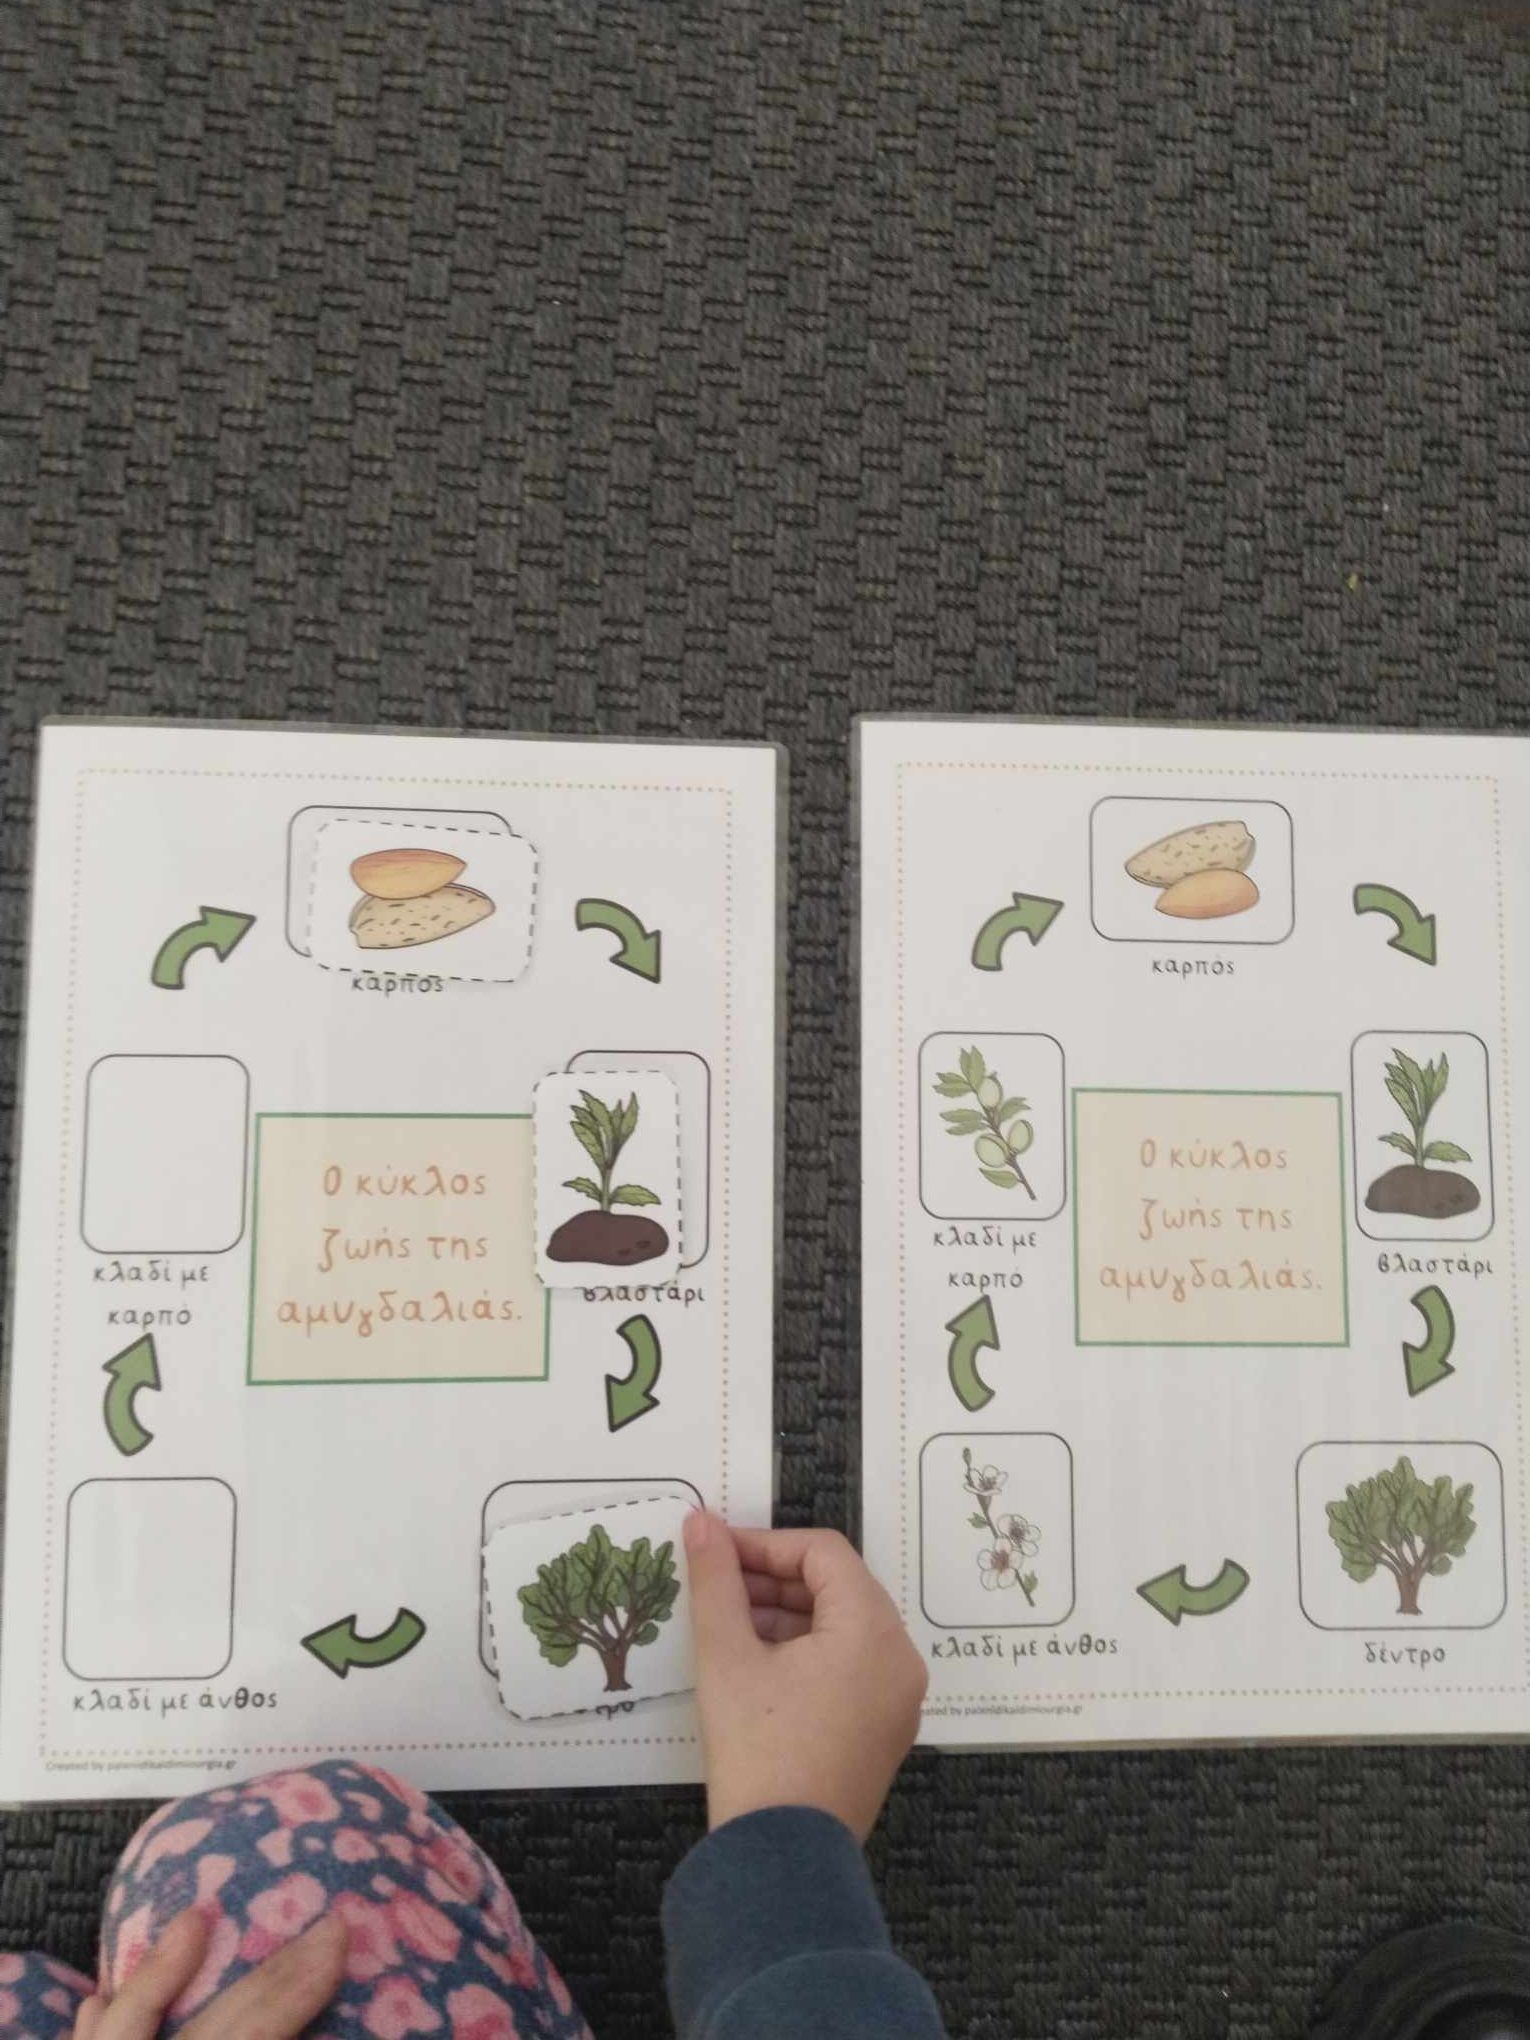 καρπός
Ο κύκλος
ζωής της
αμυγδαλιάς.
κλαδί με
καρπό
βλαστάρι
κλαδί με άνθος
Created by paixnidikaidimiourgia.gr
καρπός
Ο κύκλος
ζωής της
αμυγδαλιάς.
κλαδί με
καρπό
βλαστάρι
κλαδί με άνθος
δέντρο
by paixnidikaidimiourgia.gr